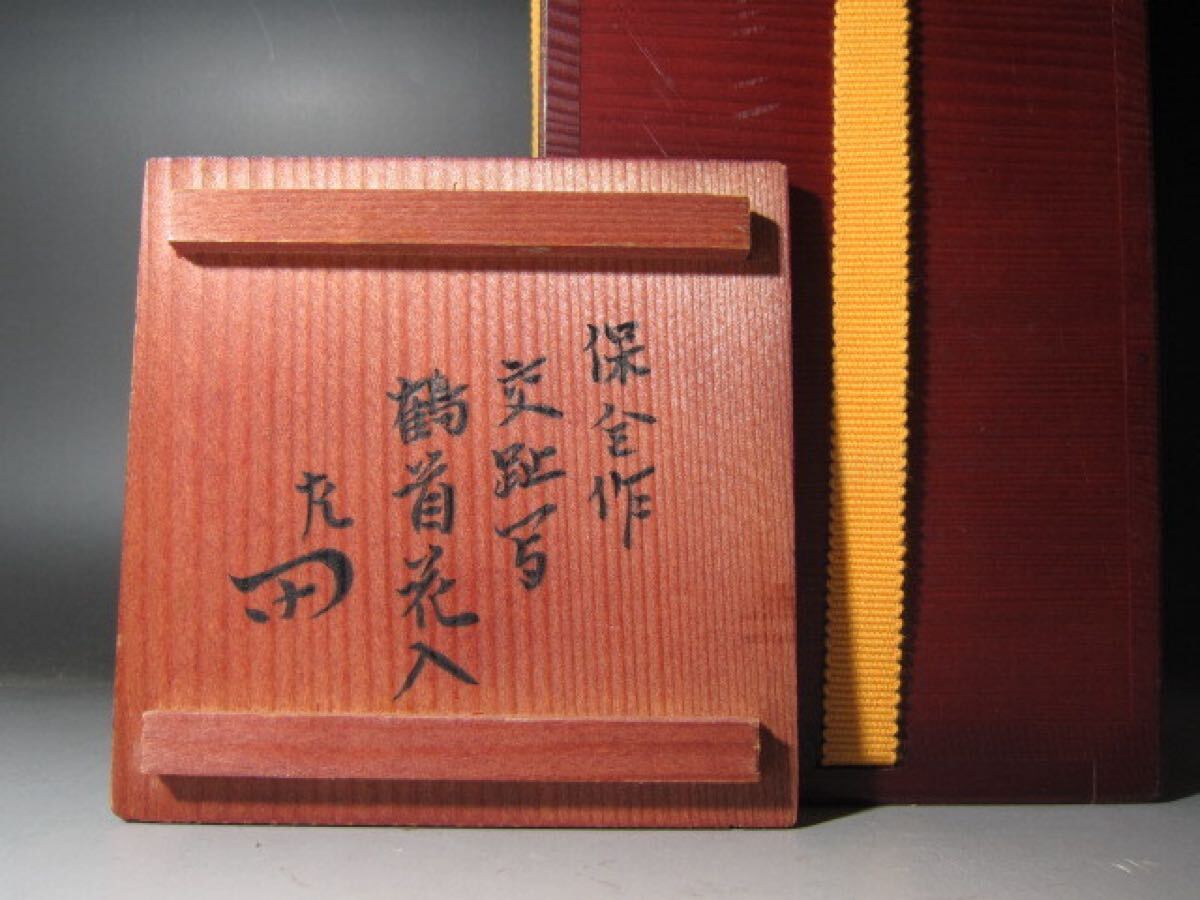 保全作
交趾写
鶴首花入
左